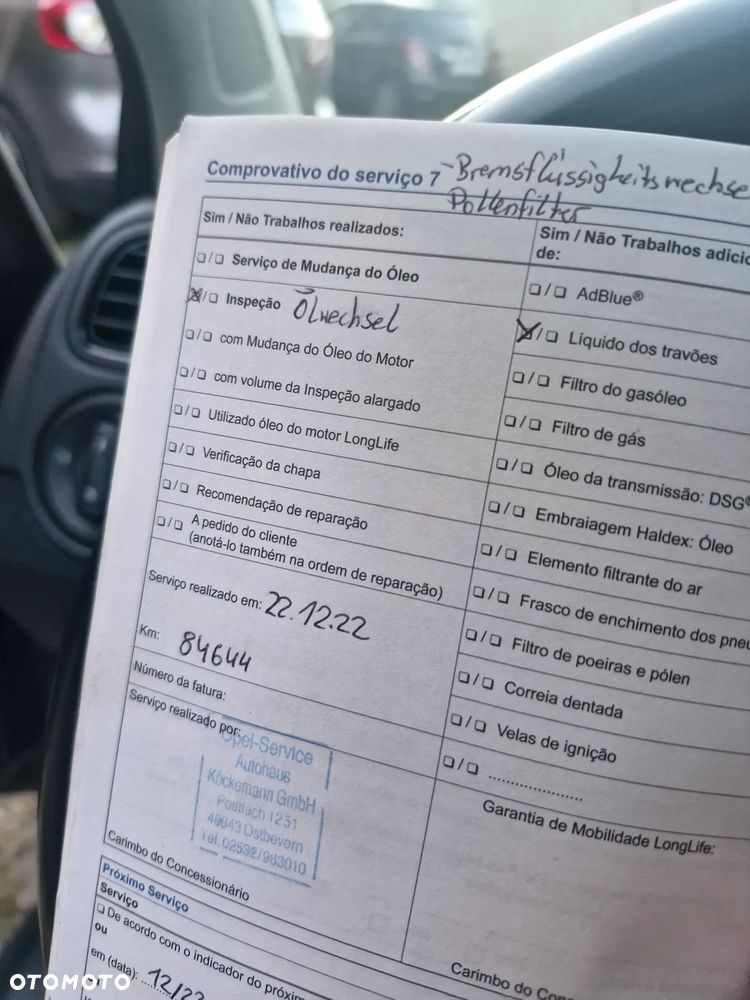 Comprovativo do serviço 7 - Bremsflüssigkeitswechse
Pollenfilter
Sim / Não Trabalhos realizados:
❑ / ❑ Serviço de Mudança do Óleo
☒ / ❑ Inspeção Ölwechsel
❑ / ❑ com Mudança do Óleo do Motor
❑ / ❑ com volume da Inspeção alargado
❑ / ❑ Utilizado óleo do motor LongLife
❑ / ❑ Verificação da chapa
❑ / ❑ Recomendação de reparação
❑ / ❑ A pedido do cliente
(anotá-lo também na ordem de reparação)
Serviço realizado em: 22.12.22
Km: 84644
Número da fatura:
Serviço realizado por:
Opel-Service
Autohaus
Köckemann GmbH
Postfach 1251
48343 Ostbevern
Tel. 02532/963010
Carimbo do Concessionário
Sim / Não Trabalhos adicio
de:
❑ / ❑ AdBlue®
☒ / ❑ Líquido dos travões
❑ / ❑ Filtro do gasóleo
❑ / ❑ Filtro de gás
❑ / ❑ Óleo da transmissão: DSG®
❑ / ❑ Embraiagem Haldex: Óleo
❑ / ❑ Elemento filtrante do ar
❑ / ❑ Frasco de enchimento dos pneu
❑ / ❑ Filtro de poeiras e pólen
❑ / ❑ Correia dentada
❑ / ❑ Velas de ignição
❑ / ❑ ....................
Garantia de Mobilidade LongLife:
Carimbo do Con
Próximo Serviço
Serviço
❑ De acordo com o indicador do próxim
ou
em (data): 12/23
OTOMOTO